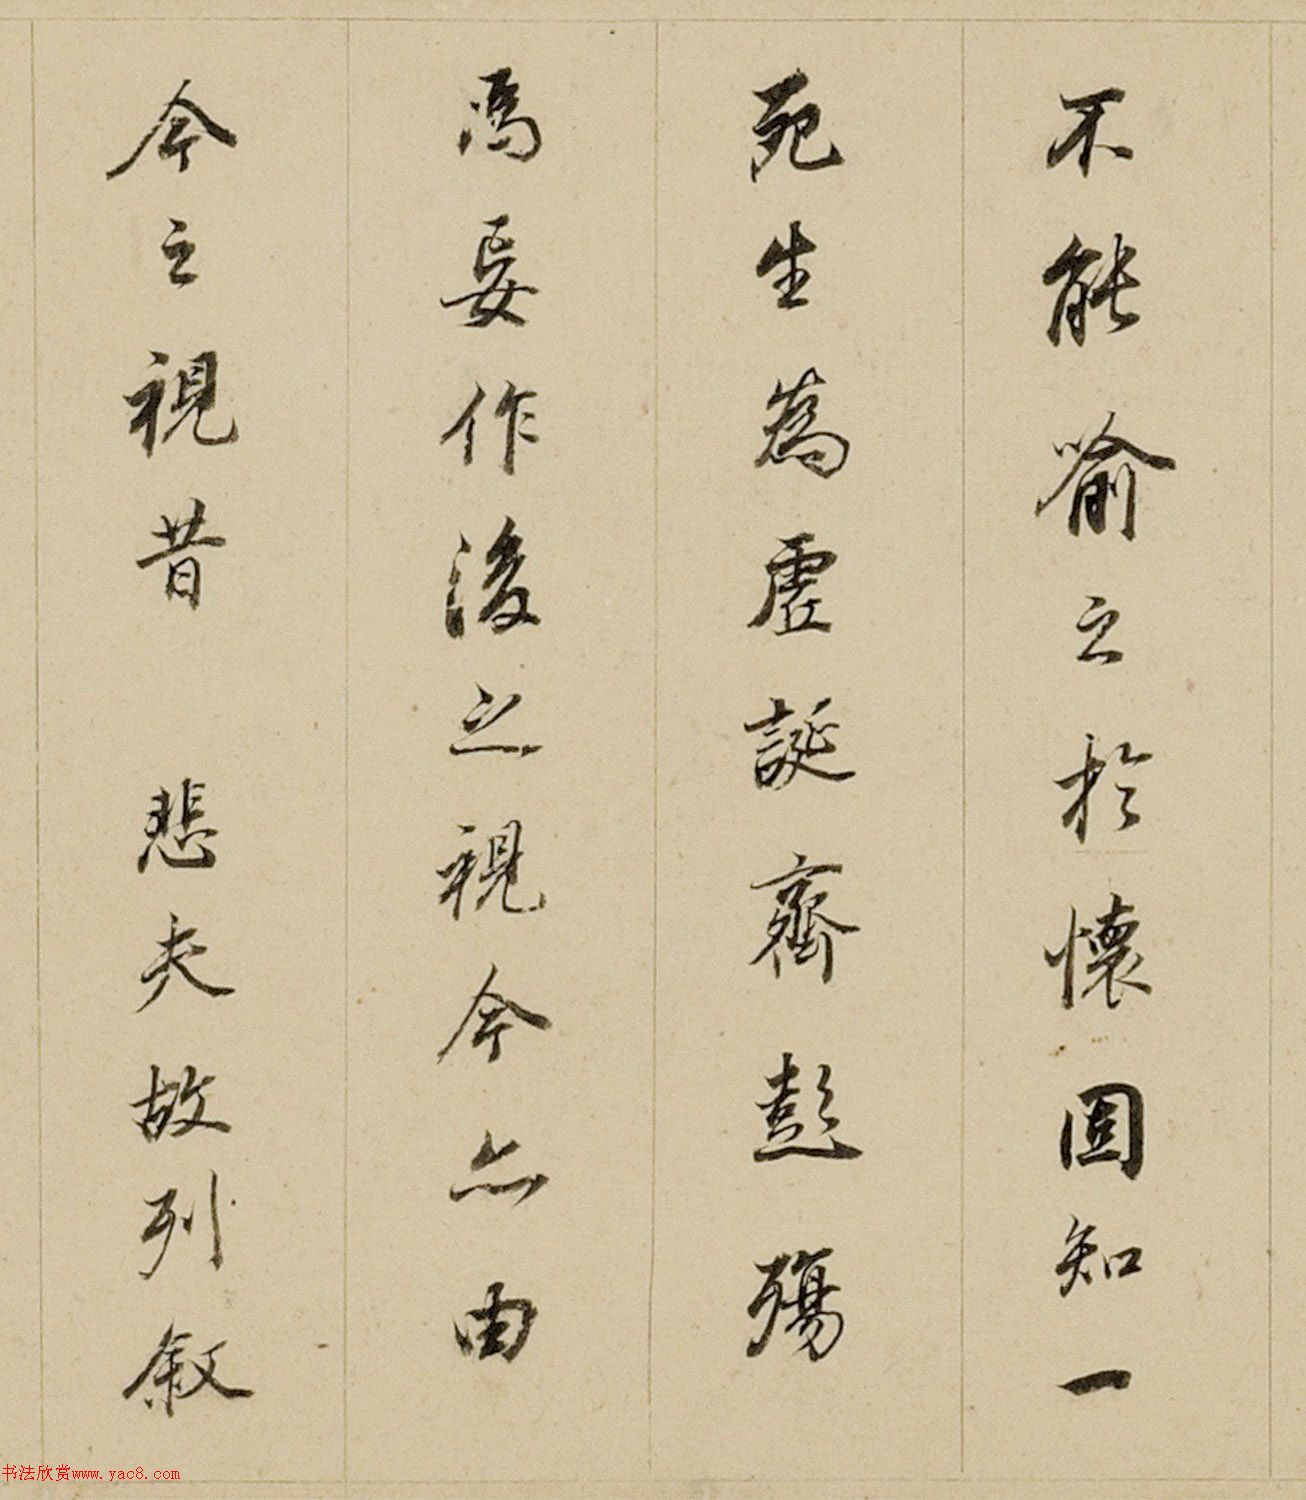 不能喻之於懷固知一
死生為虛誕齊彭殤
為妄作後之視今亦由
今之視昔 悲夫故列敘
书法欣赏www.yac8.com